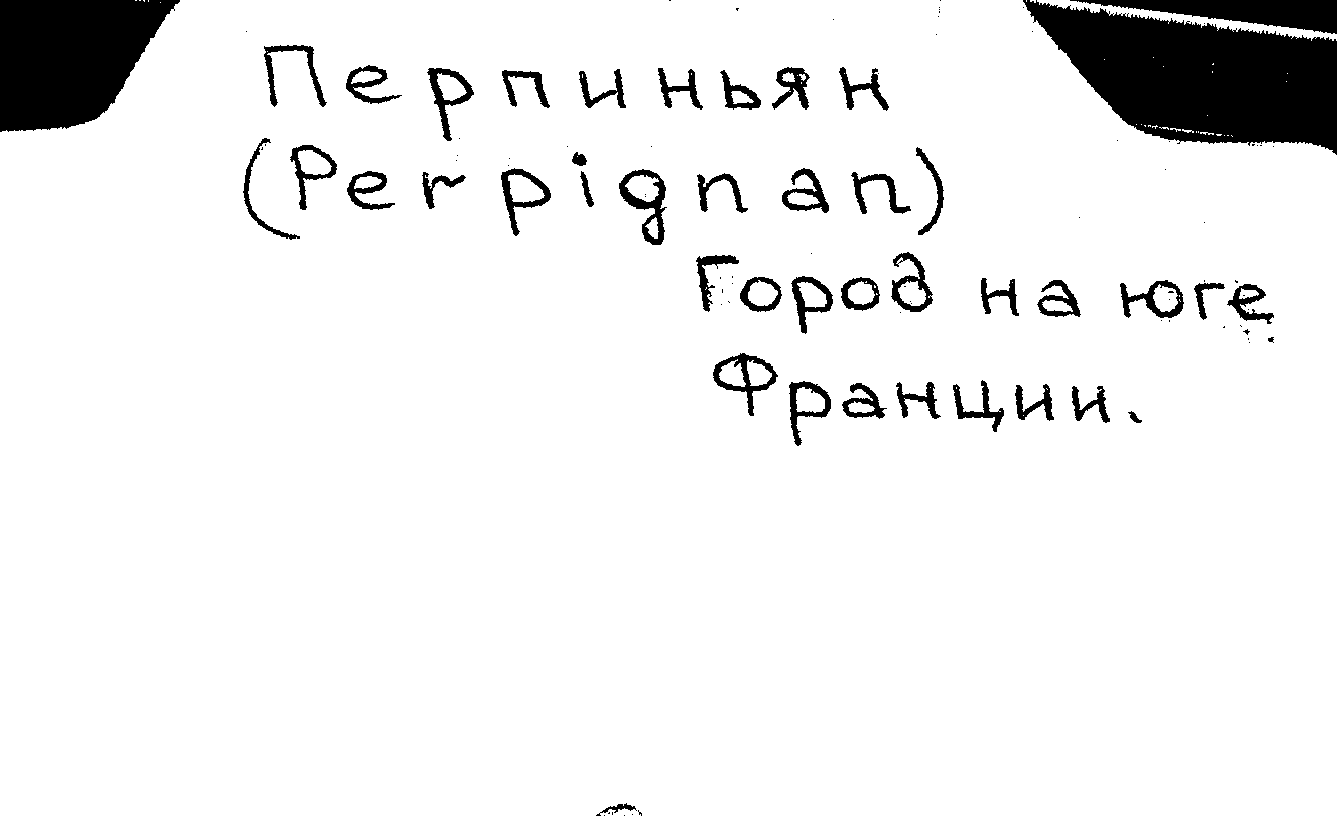 Перпиньян
(Perpignan)
Город на юге
Франции.